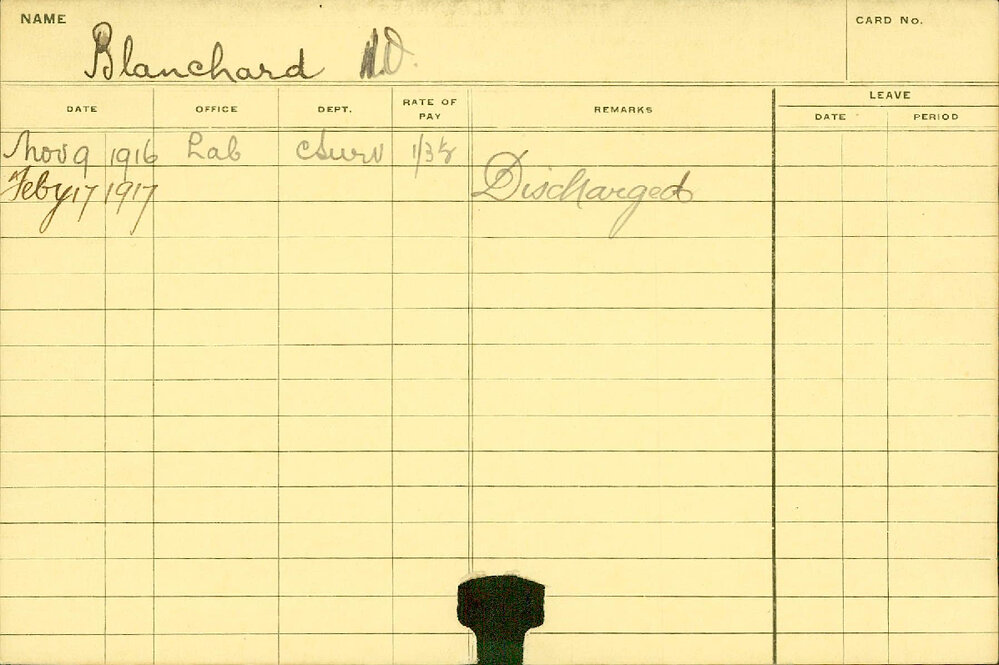 NAME
CARD No.
Blanchard
DATE OFFICE DEPT. RATE OF PAY REMARKS LEAVE
DATE PERIOD
Nov 9 1916 Lab CSurv
Feby 17 1917 Discharged